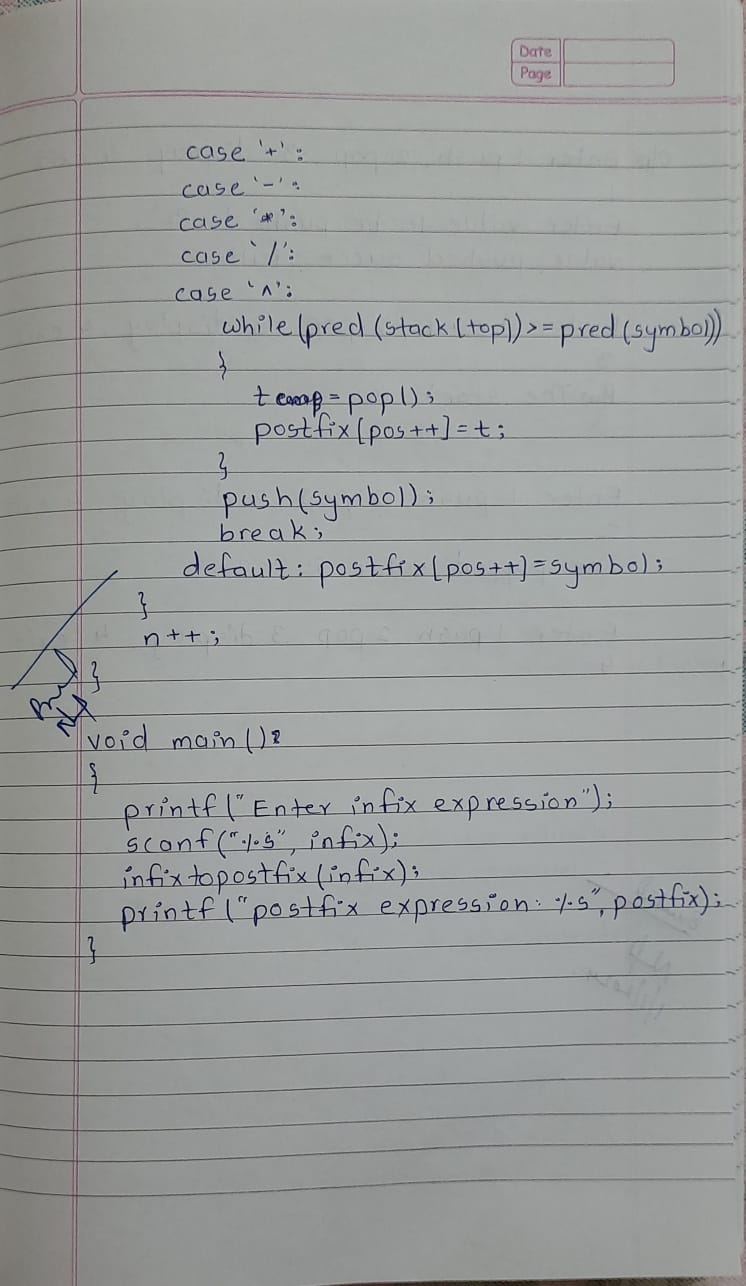 Date
Page
case '+' :
case '-' :
case '*' :
case '/' :
case '^' :
while(pred(stack[top])>=pred(symbol))
{
t = pop();
postfix[pos++]=t;
}
push(symbol);
break;
default: postfix[pos++]=symbol;
}
n++;
}
void main()
{
printf("Enter infix expression");
scanf("%s", infix);
infixtopostfix(infix);
printf("postfix expression: %s", postfix);
}